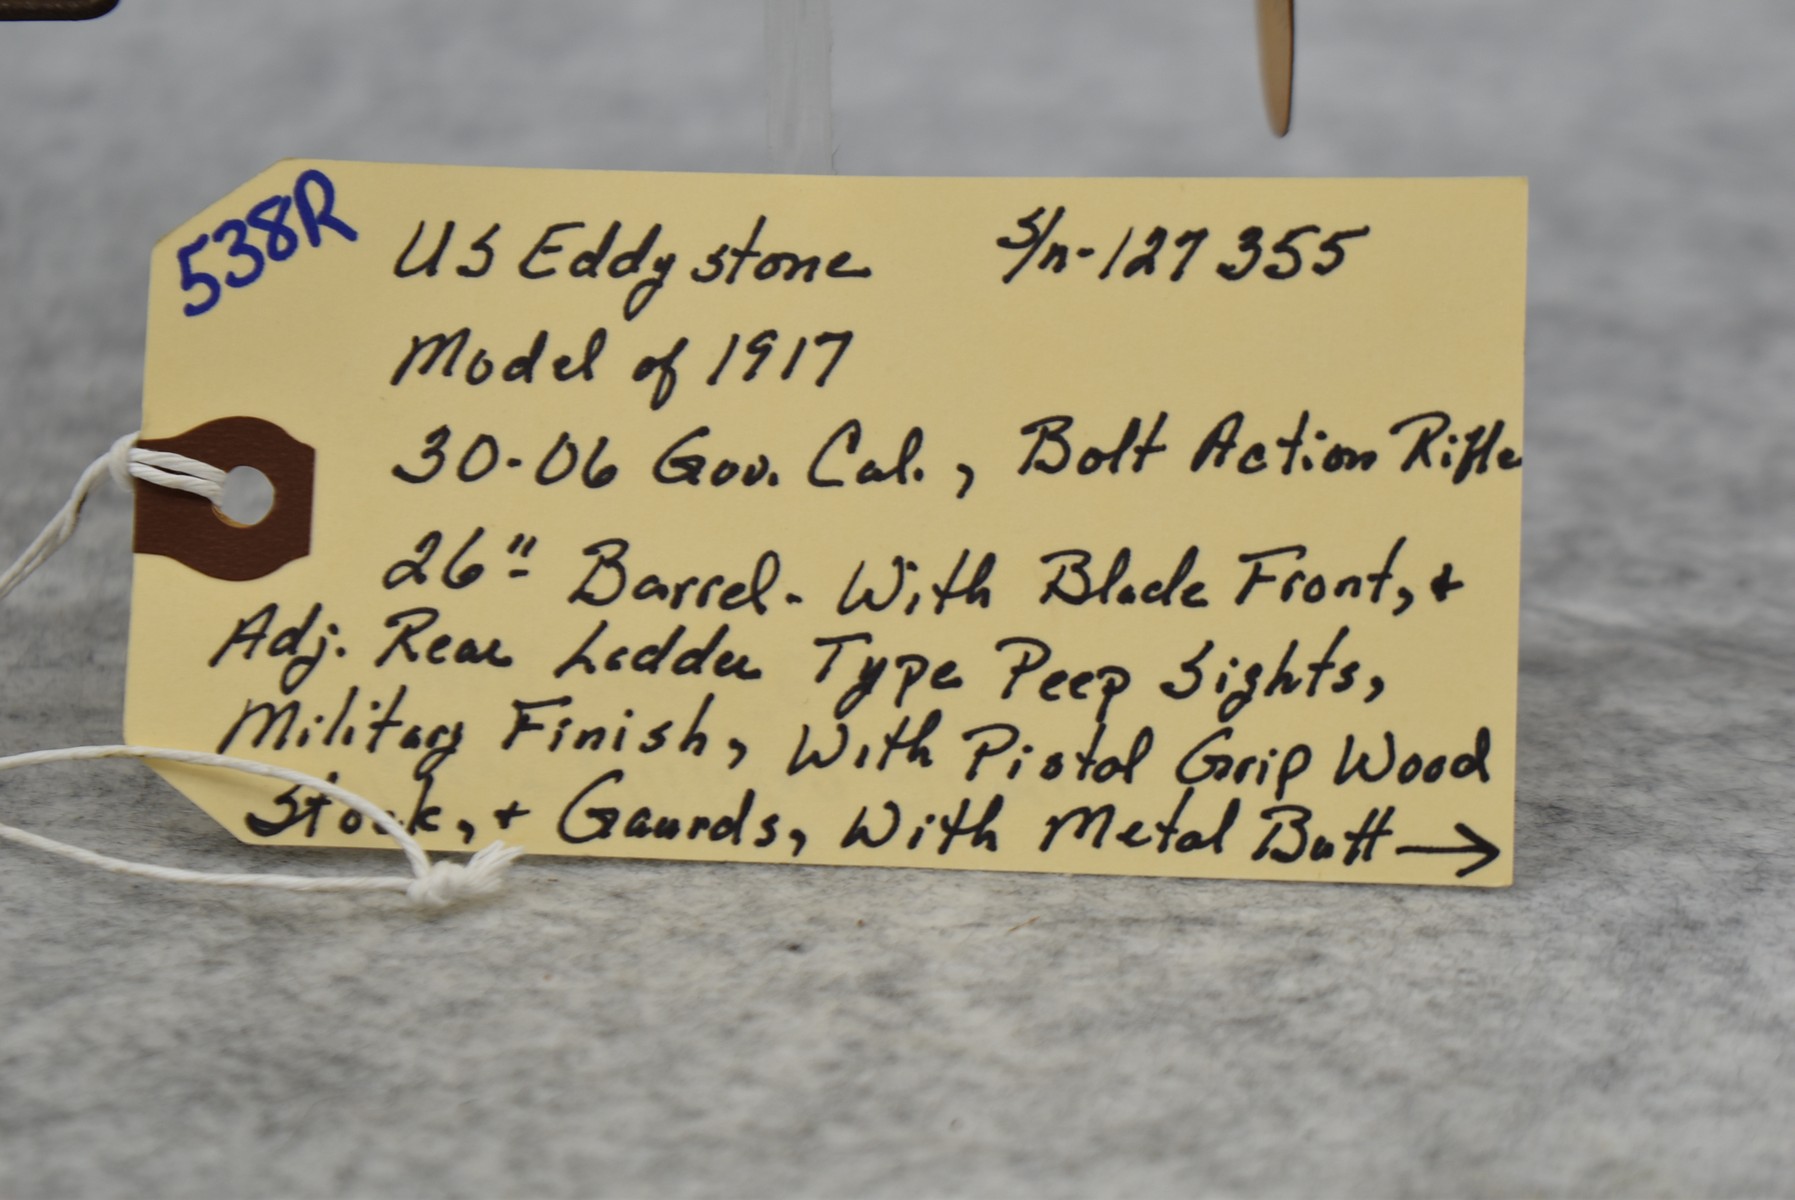 538R
US Eddystone S/n-127355
Model of 1917
30-06 Gov. Cal., Bolt Action Rifle
26" Barrel - With Blade Front, +
Adj. Rear Ladder Type Peep Sights,
Military Finish, With Pistol Grip Wood
Stock, + Gaurds, With Metal Butt →